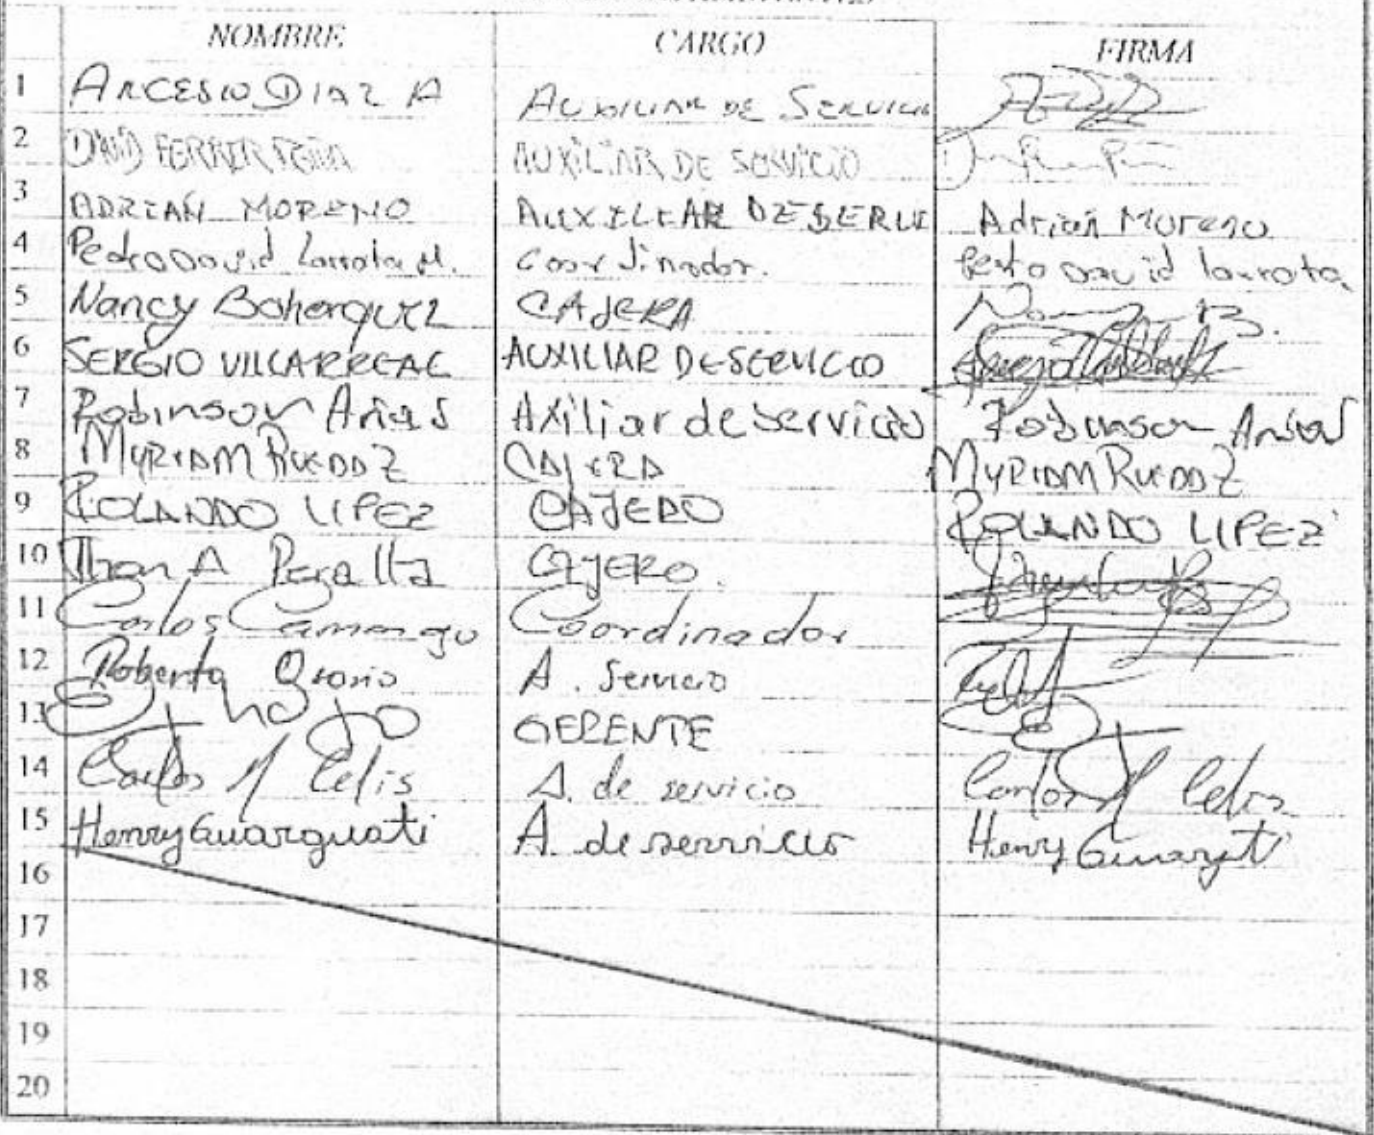 NOMBRE CARGO FIRMA
1 ARCESIO DIAZ A AUXILIAR DE SERVICIO
2 DAVID FERRER PEÑA AUXILIAR DE SERVICIO
3 ADRIAN MORENO AUXILIAR DE SERVI Adrian Moreno
4 Pedro David Larrota M. Coordinador. Pedro David larrota.
5 Nancy Bohorquez CAJERA Nancy B.
6 SERGIO VILLARREAL AUXILIAR DE SERVICIO
7 Robinson Arias Axiliar de servicio Robinson Arias
8 MYRIAM RUEDA Z CAJERA MYRIAM RUEDA Z
9 ROLANDO LIPEZ CAJERO ROLANDO LIPEZ
10 Jhon A Peralta CAJERO.
11 Carlos Camargo Coordinador
12 Roberto Osorio A. Servicio
13 GERENTE
14 Carlos M Celis A. de servicio Carlos M Celis
15 Henry Guarguati A. de servicio Henry Guarguati
16
17
18
19
20